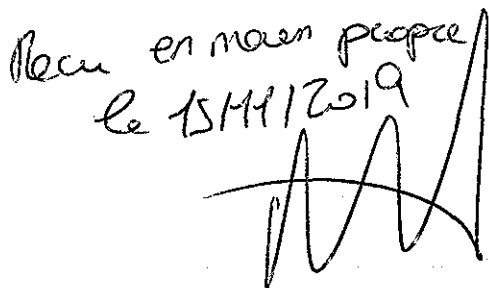 Recu en main propre
le 15/11/2019